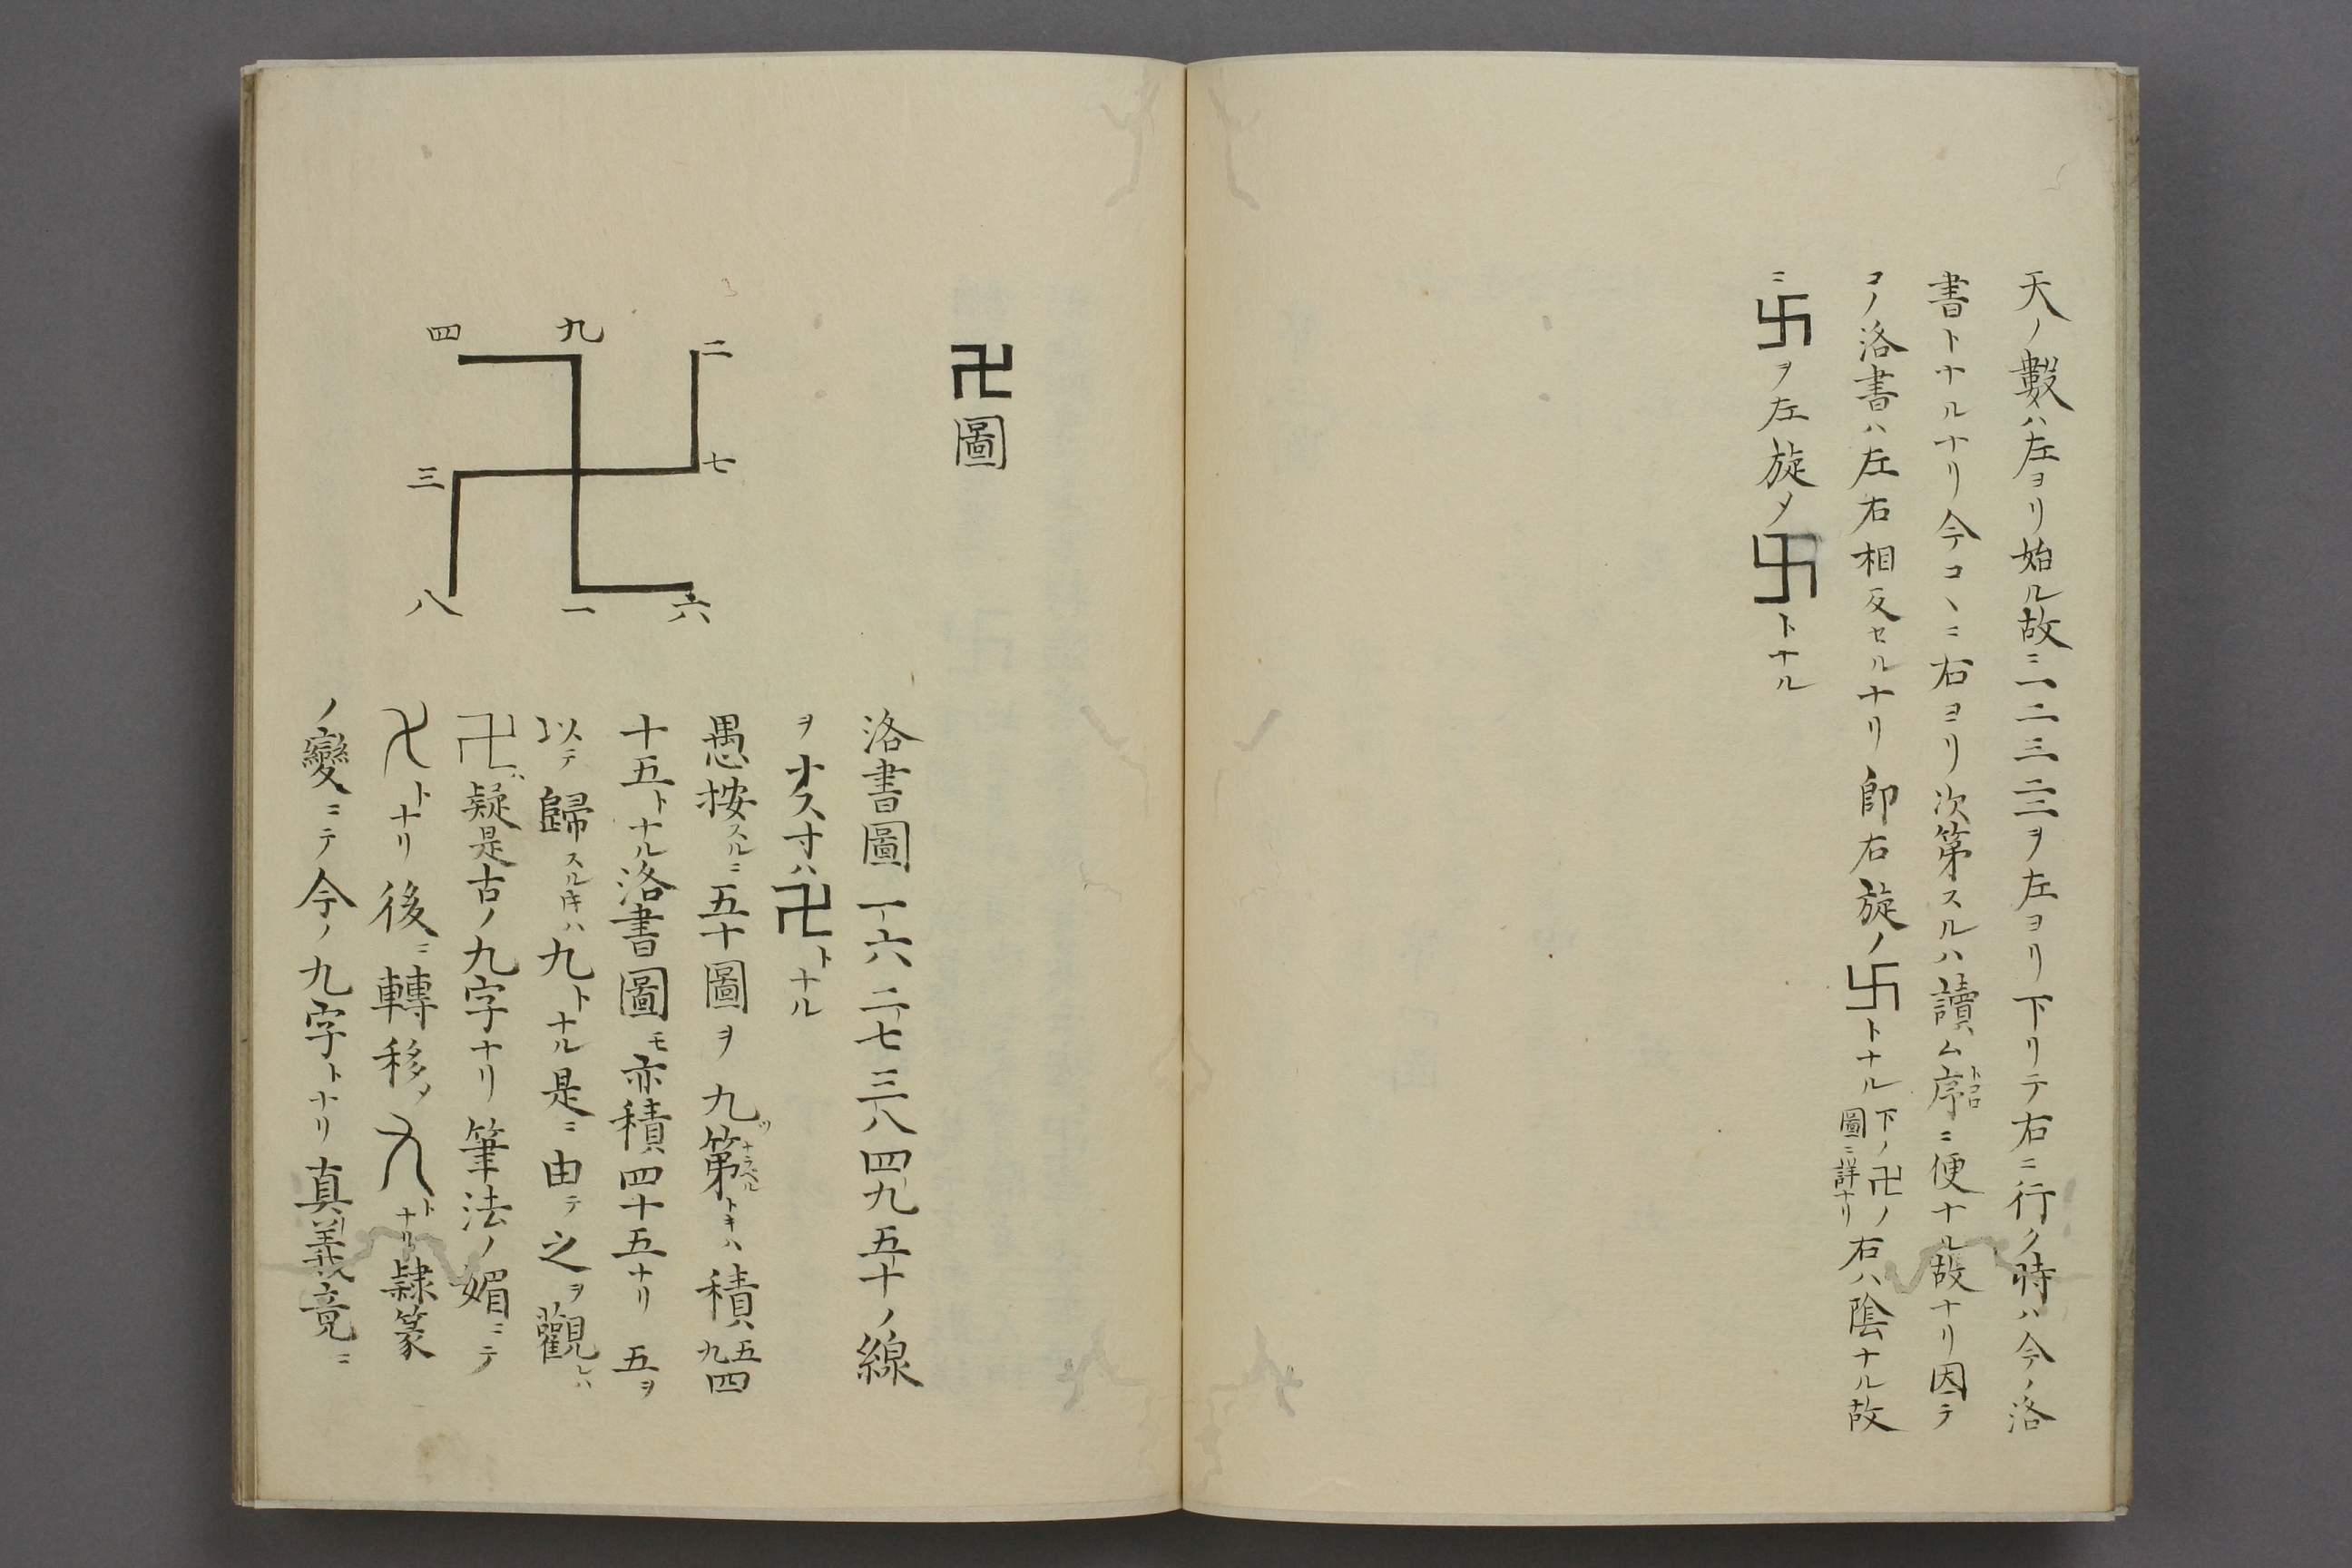 天ノ數ハ左ヨリ始ル故ニ一二三亖ヲ左ヨリ下リテ右ニ行ク時ハ今ノ洛
書トナルナリ今コヽニ右ヨリ次第スルハ讀ム序トコロニ便ナル故ナリ因テ
コノ洛書ハ左右相反セルナリ即右旋ノ卐トナル下ノ卍ノ圖ニ詳ナリ右ハ陰ナル故
ニ卐ヲ左旋メ卐トナル
卍圖
二 九 四
七 三
六 一 八
洛書圖一六二七三八四九五十ノ線
ヲナス寸ハ卍トナル
愚按スルニ五十圖ヲ九ツ第ナラベルトキハ積五四九四
十五トナル洛書圖モ亦積四十五ナリ五ヲ
以テ歸スル寸ハ九トナル是ニ由テ之ヲ觀レハ
卍ハ疑是古ノ九字ナリ筆法ノ媚ニテ
トナリ後ニ轉移メ トナリ隷篆
ノ變ニテ今ノ九字トナリ真義竟ニ